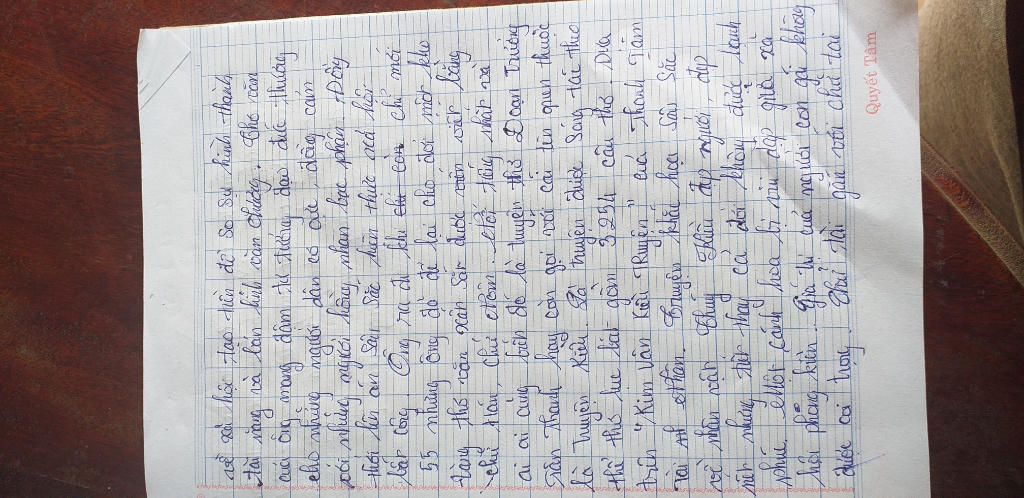 về xã hội tạo tiền đề so sự hình thành
tài năng và bản lĩnh văn chương. Thơ văn
của ông mang đậm tư tưởng đạo đức thương
cho những người dân cơ cực, đồng cảm
với những người hồng nhan bạc phận. Đồng
thời lên án sâu sắc hiện thức xã hội
bất công. Ông ra đi khi chỉ còn chỉ mới
55 nhưng ông đã để lại cho đời một kho
tàng thơ văn xán sắt được viết bằng
chữ Hán, Chữ Nôm. Nổi tiếng nhất mà
ai ai cũng biết đó là truyện thơ Đoạn Trường
Tân Thanh hay còn gọi với cái tên quen thuộc
là Truyện Kiều. Là truyện được sáng tác theo
thể thơ lục bát gồm 3254 câu thơ. Dựa
trên "Kim Vân Kiều Truyện" của Thanh Tâm
Tài Nhân. Truyện khắc họa sâu sắc
với nhân vật Thúy Kiều đẹp người, đẹp
nết nhưng tiếc thay cả đời không được hạnh
phúc. Một cánh hoa bị vùi dập giữa xã
hội phong kiến. Giá trị của người con gái không
được coi trọng. Chữ tài gắn với chữ tai
Quyết Tâm